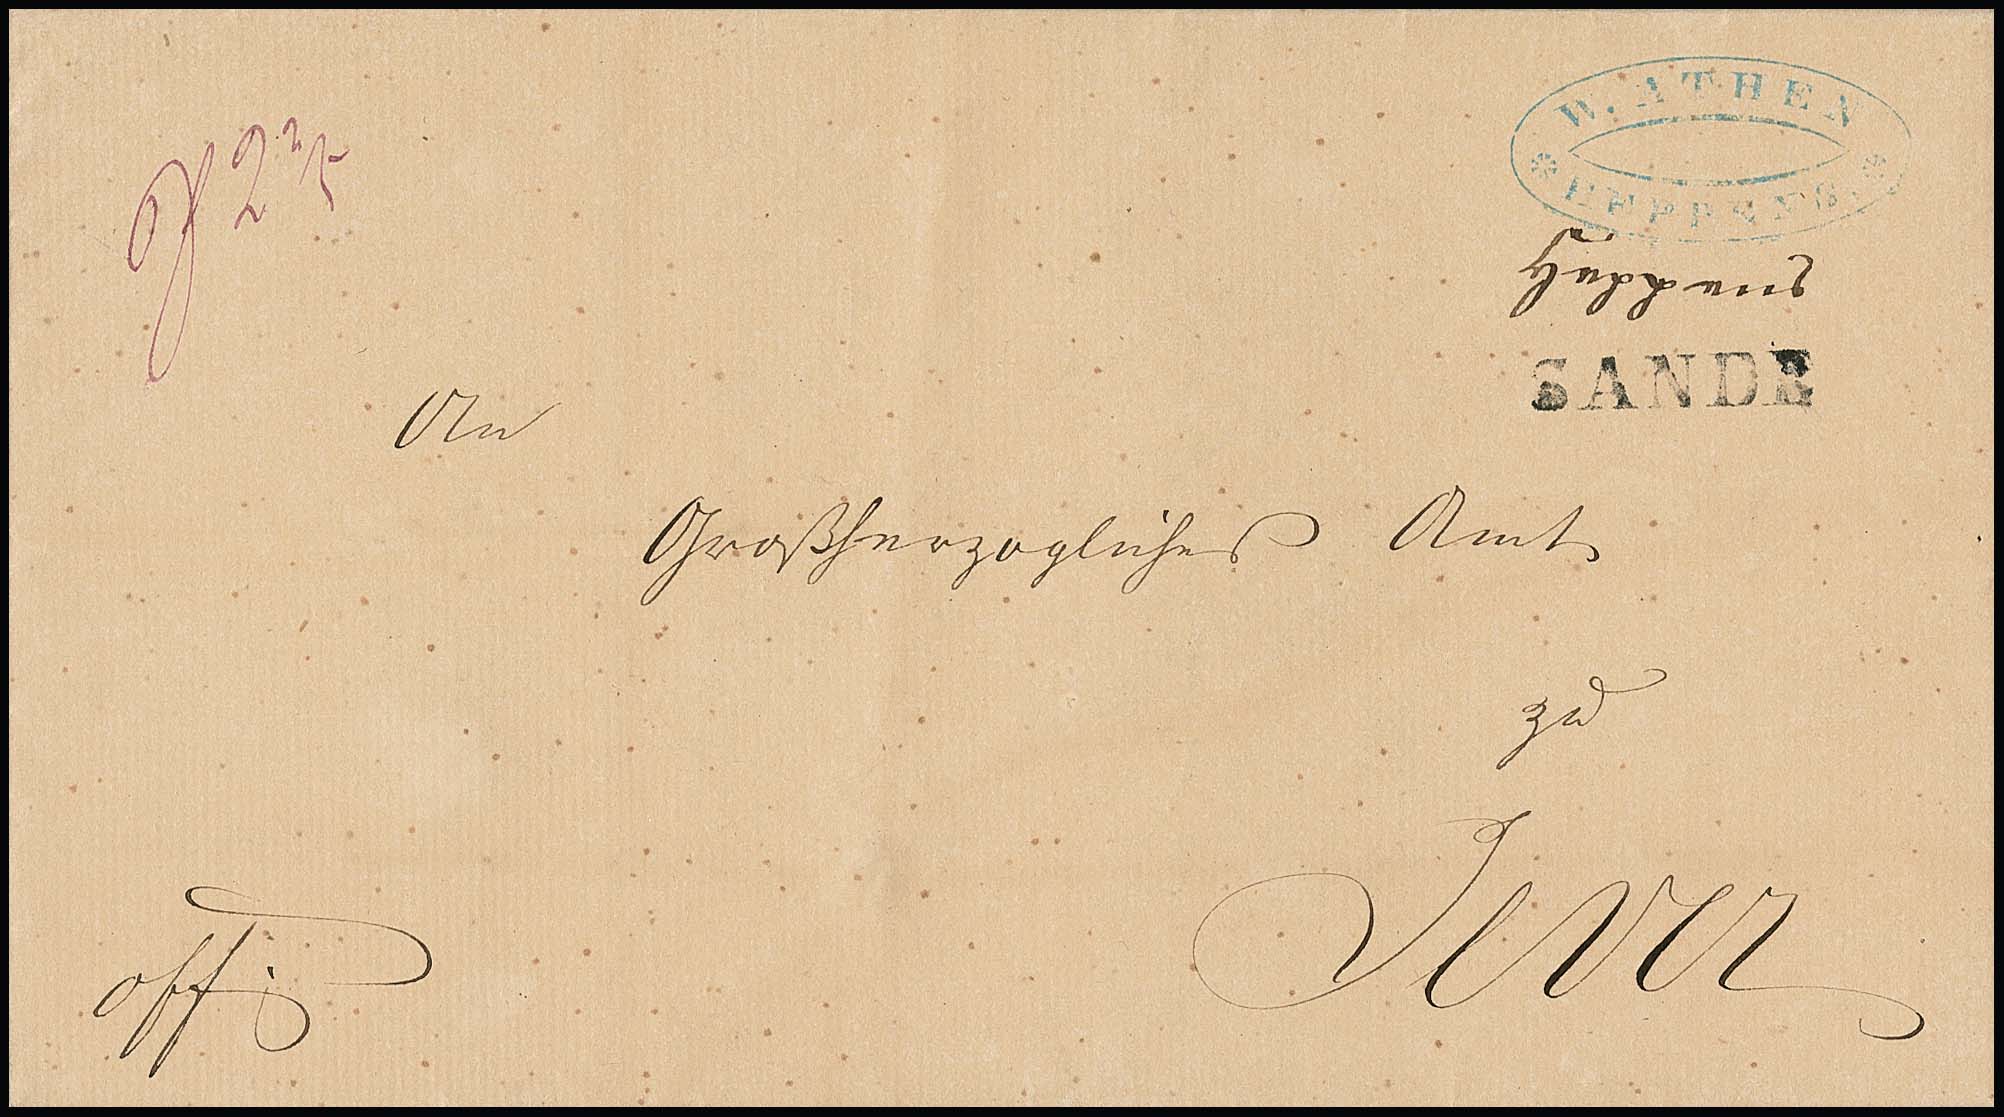 W. ATHEN
HEPPENS.
Heppens
SANDE
2 2/5
An
Großherzogliches Amt
zu
Jever
off